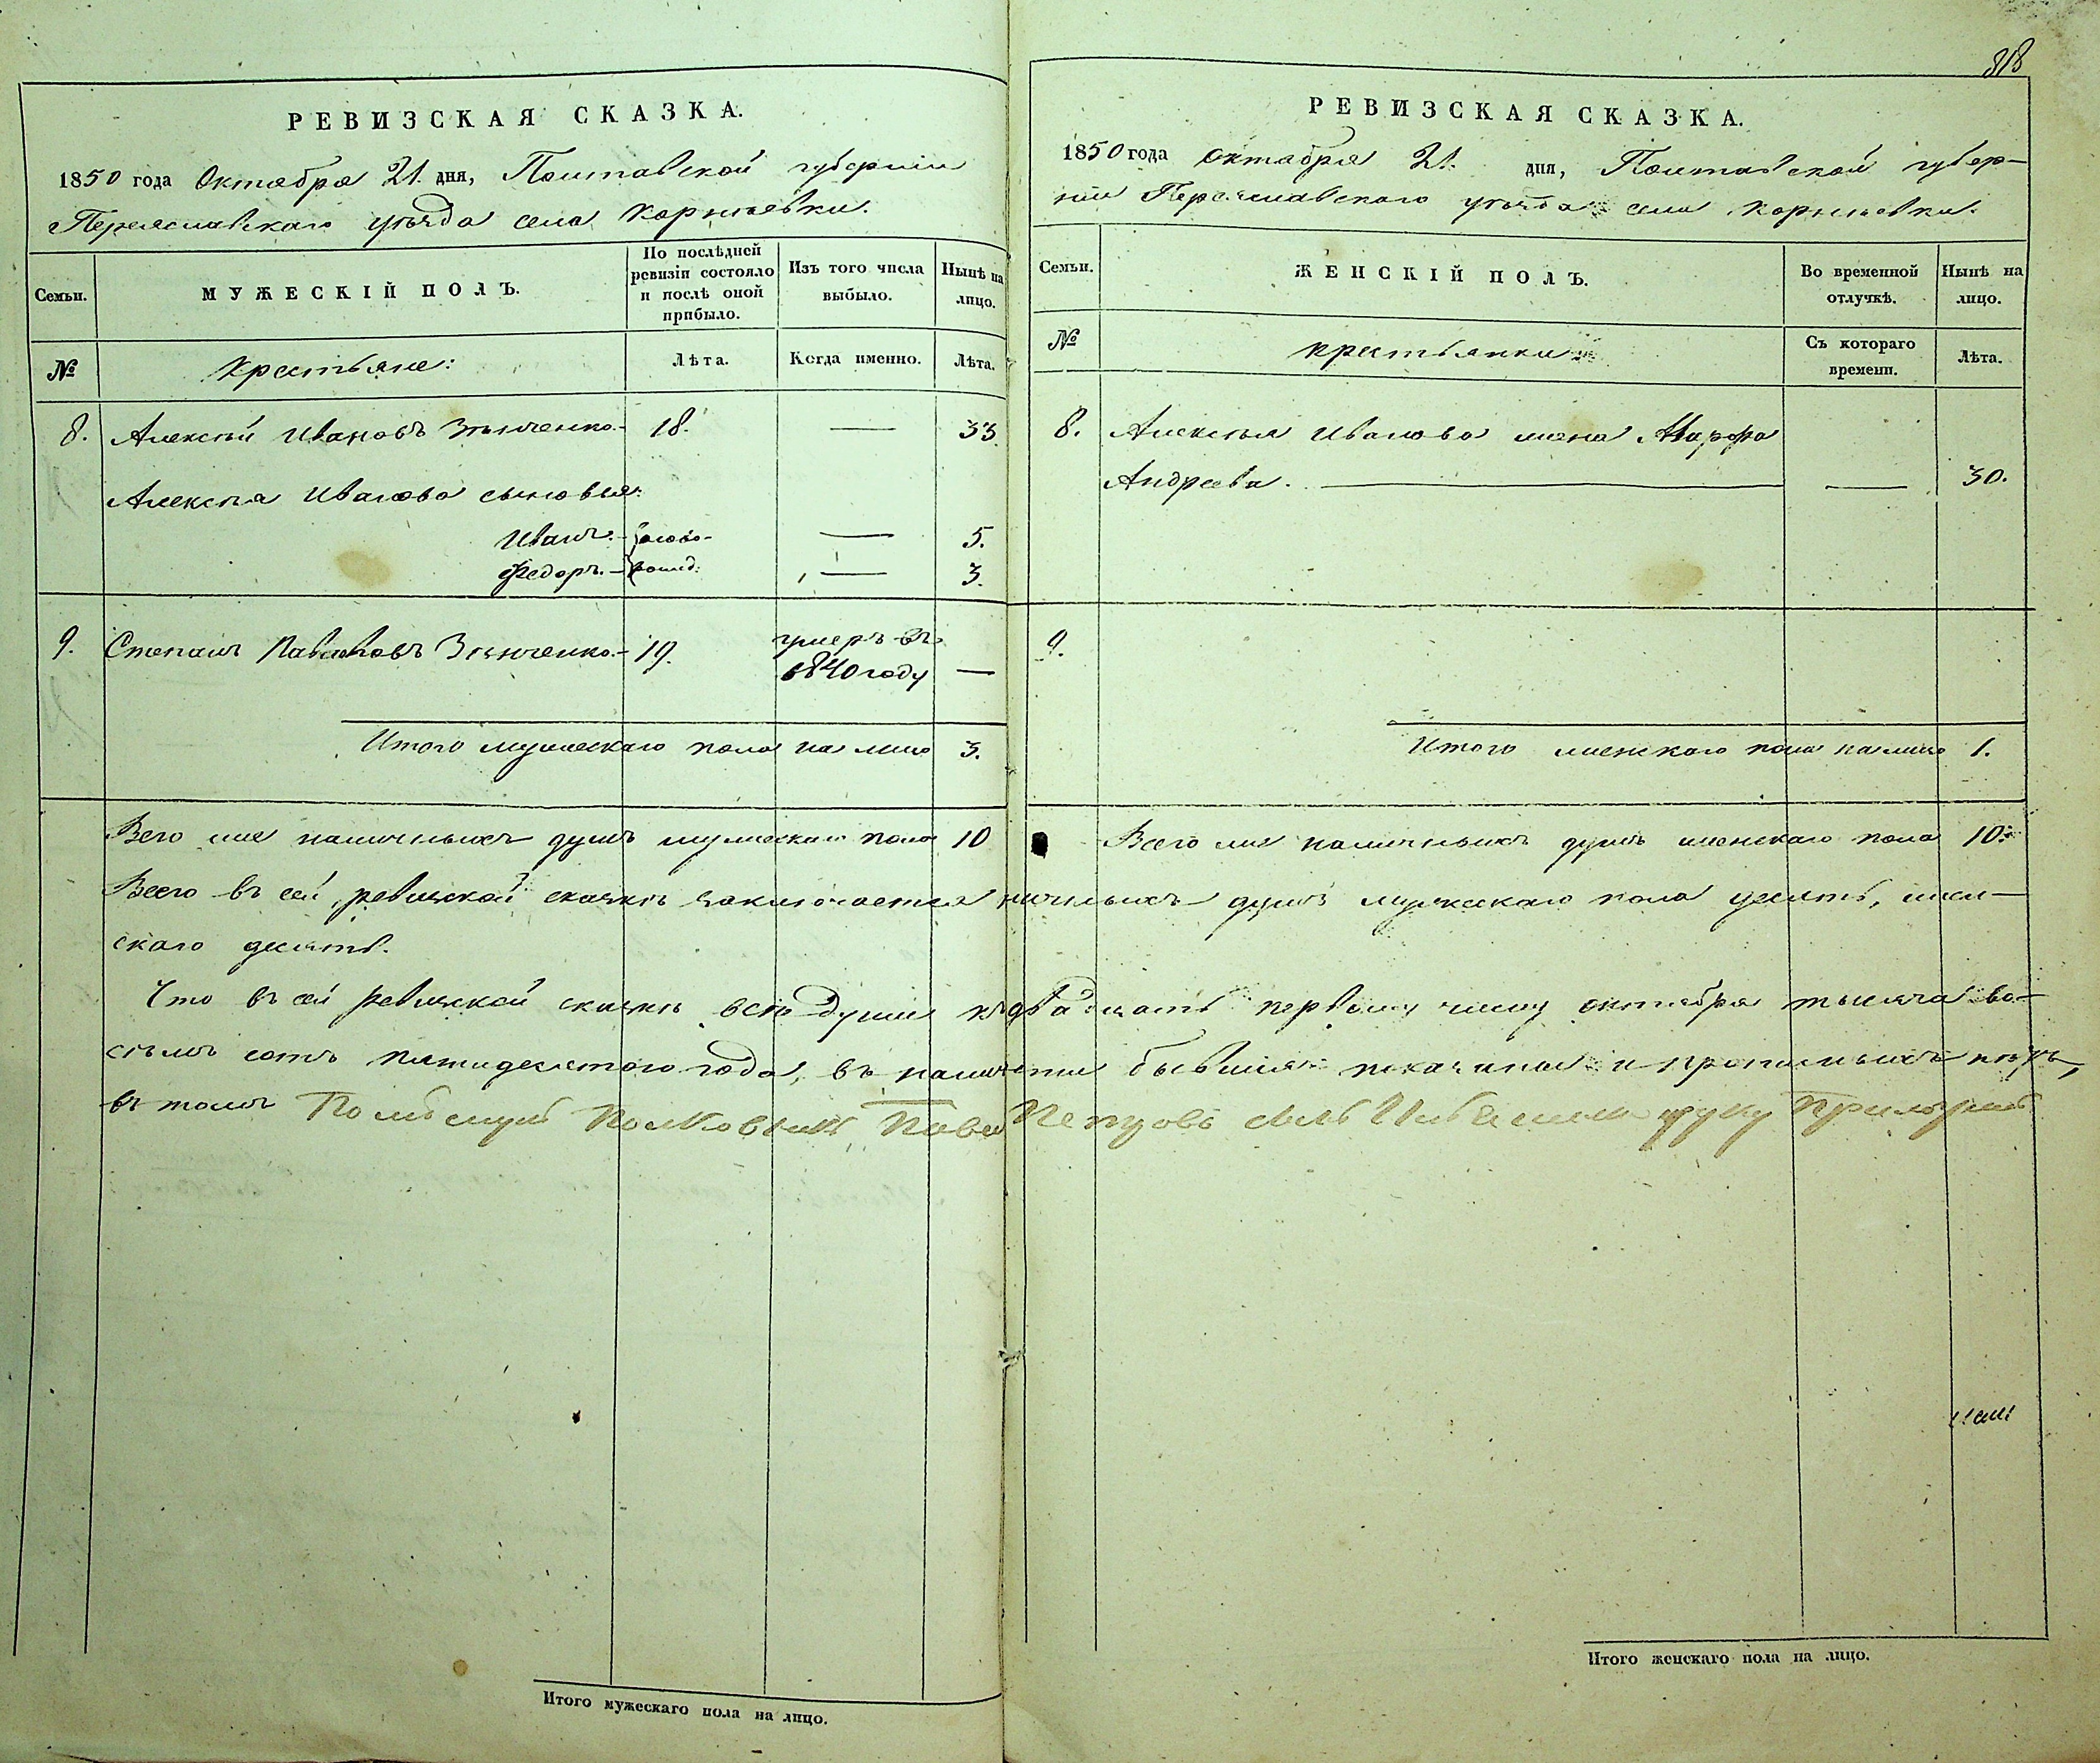 РЕВИЗСКАЯ СКАЗКА.
1850 года Октября 21. дня, Полтавской губернии
Переяславскаго уѣзда села Корнѣевки.
Семьи.
МУЖЕСКІЙ ПОЛЪ.
По послѣдней ревизіи состояло и послѣ оной прибыло.
Изъ того числа выбыло.
Нынѣ на лицо.
№
Крестьяне:
Лѣта.
Когда именно.
Лѣта.
8. Алексѣй Ивановъ Зѣнченко. 18. — 33.
Алексѣя Иванова сыновья:
Иванъ. ново- — 5.
Федоръ. рожд: — 3.
9. Степанъ Павловъ Зѣнченко. 19. умеръ въ
1840 году —
Итого мужескаго пола на лицо 3.
Всего же наличныхъ душъ мужескаго пола 10
318
РЕВИЗСКАЯ СКАЗКА.
1850 года Октября 21. дня, Полтавской губер-
ніи Переяславскаго уѣзда села Корнѣевки.
Семьи.
ЖЕНСКІЙ ПОЛЪ.
Во временной отлучкѣ.
Нынѣ на лицо.
№
Крестьянки
Съ котораго времени.
Лѣта.
8. Алексѣя Иванова жена Марфа
Андреева. — — 30.
9.
Итого женскаго пола на лицо 1.
Всего же наличныхъ душъ женскаго пола 10.
Всего въ сей ревизской сказкѣ заключается наличныхъ душъ мужескаго пола десять, жен-
скаго десять.
Что въ сей ревизской сказкѣ всѣ души къ двадцать первому числу октября тысяча во-
сѣмъ сотъ пятидесятого года, въ наличности бывшія показаны и прописныхъ нѣтъ,
въ томъ Помѣщикъ Полковникъ Павелъ Петровъ сынъ руку приложилъ
Итого мужескаго пола на лицо.
Итого женскаго пола на лицо.